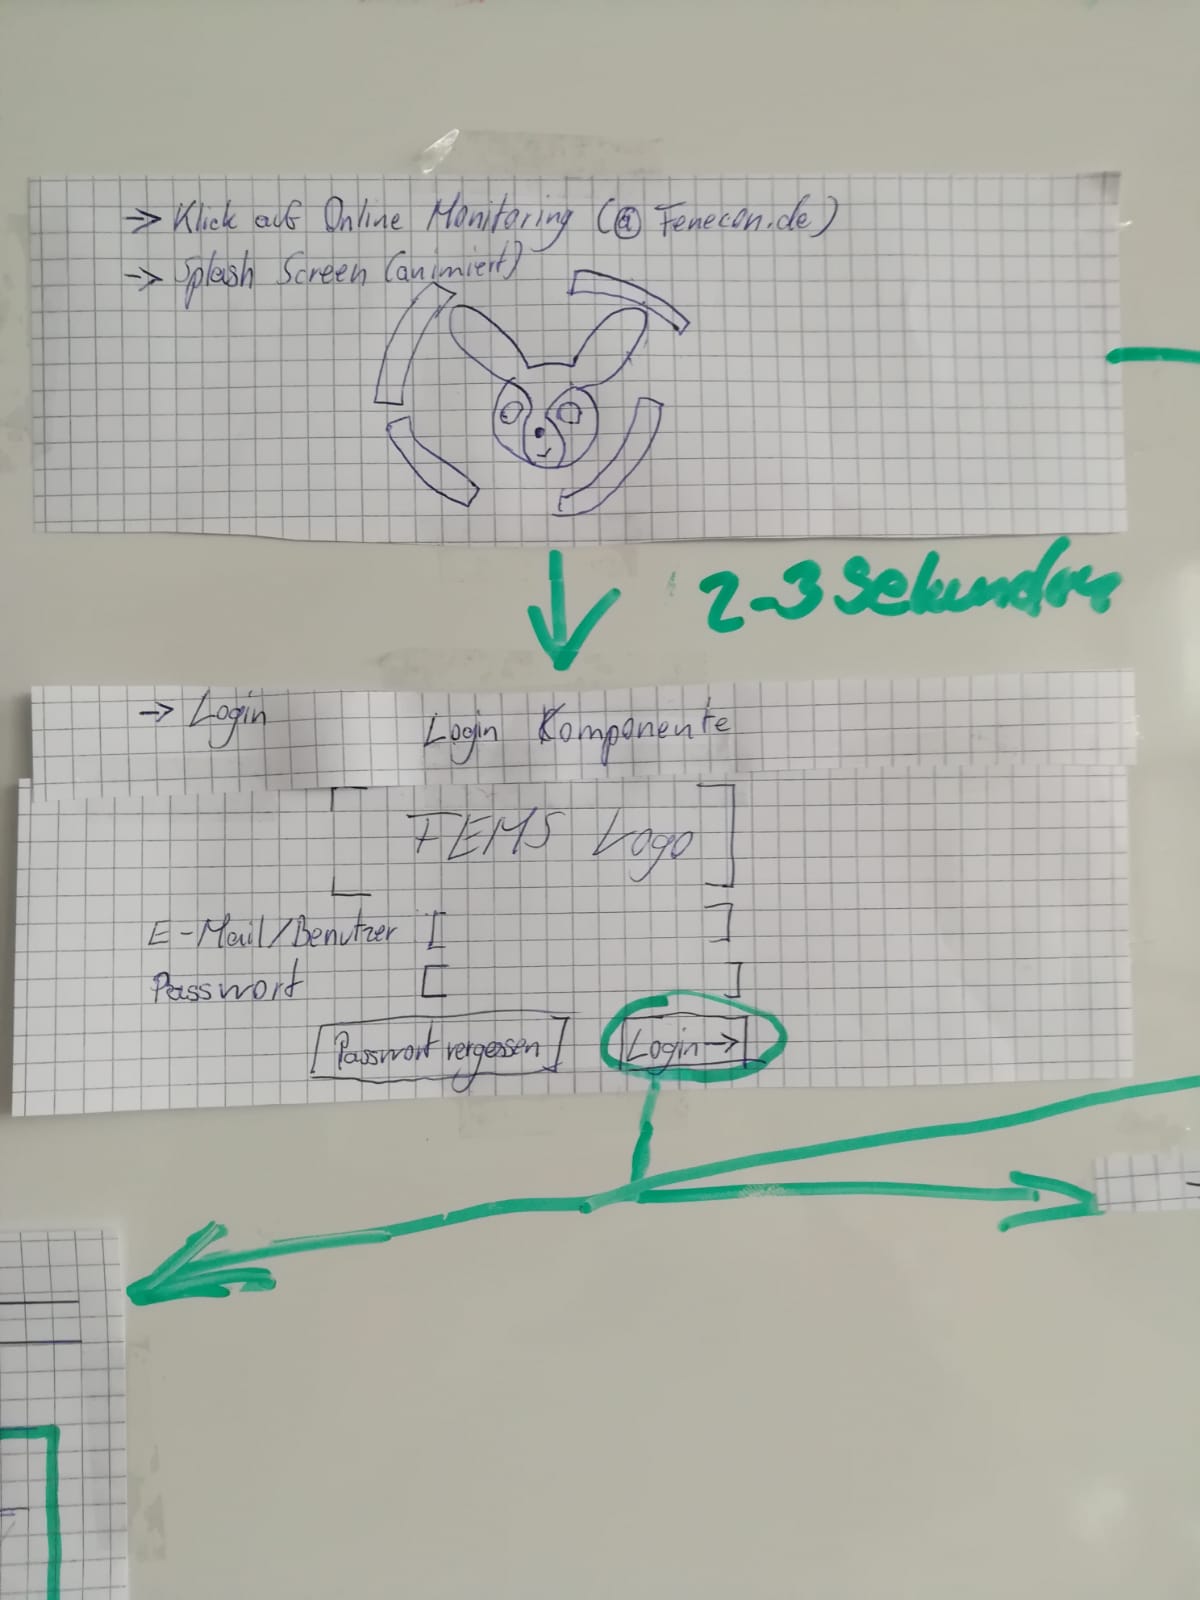 → Klick auf Online Monitoring (@ Fenecon.de)
→ Splash Screen (animiert)
2-3 Sekunden
→ Login
Login Komponente
[ FEMS Logo ]
E-Mail/Benutzer [ ]
Passwort [ ]
[Passwort vergessen] [Login→]